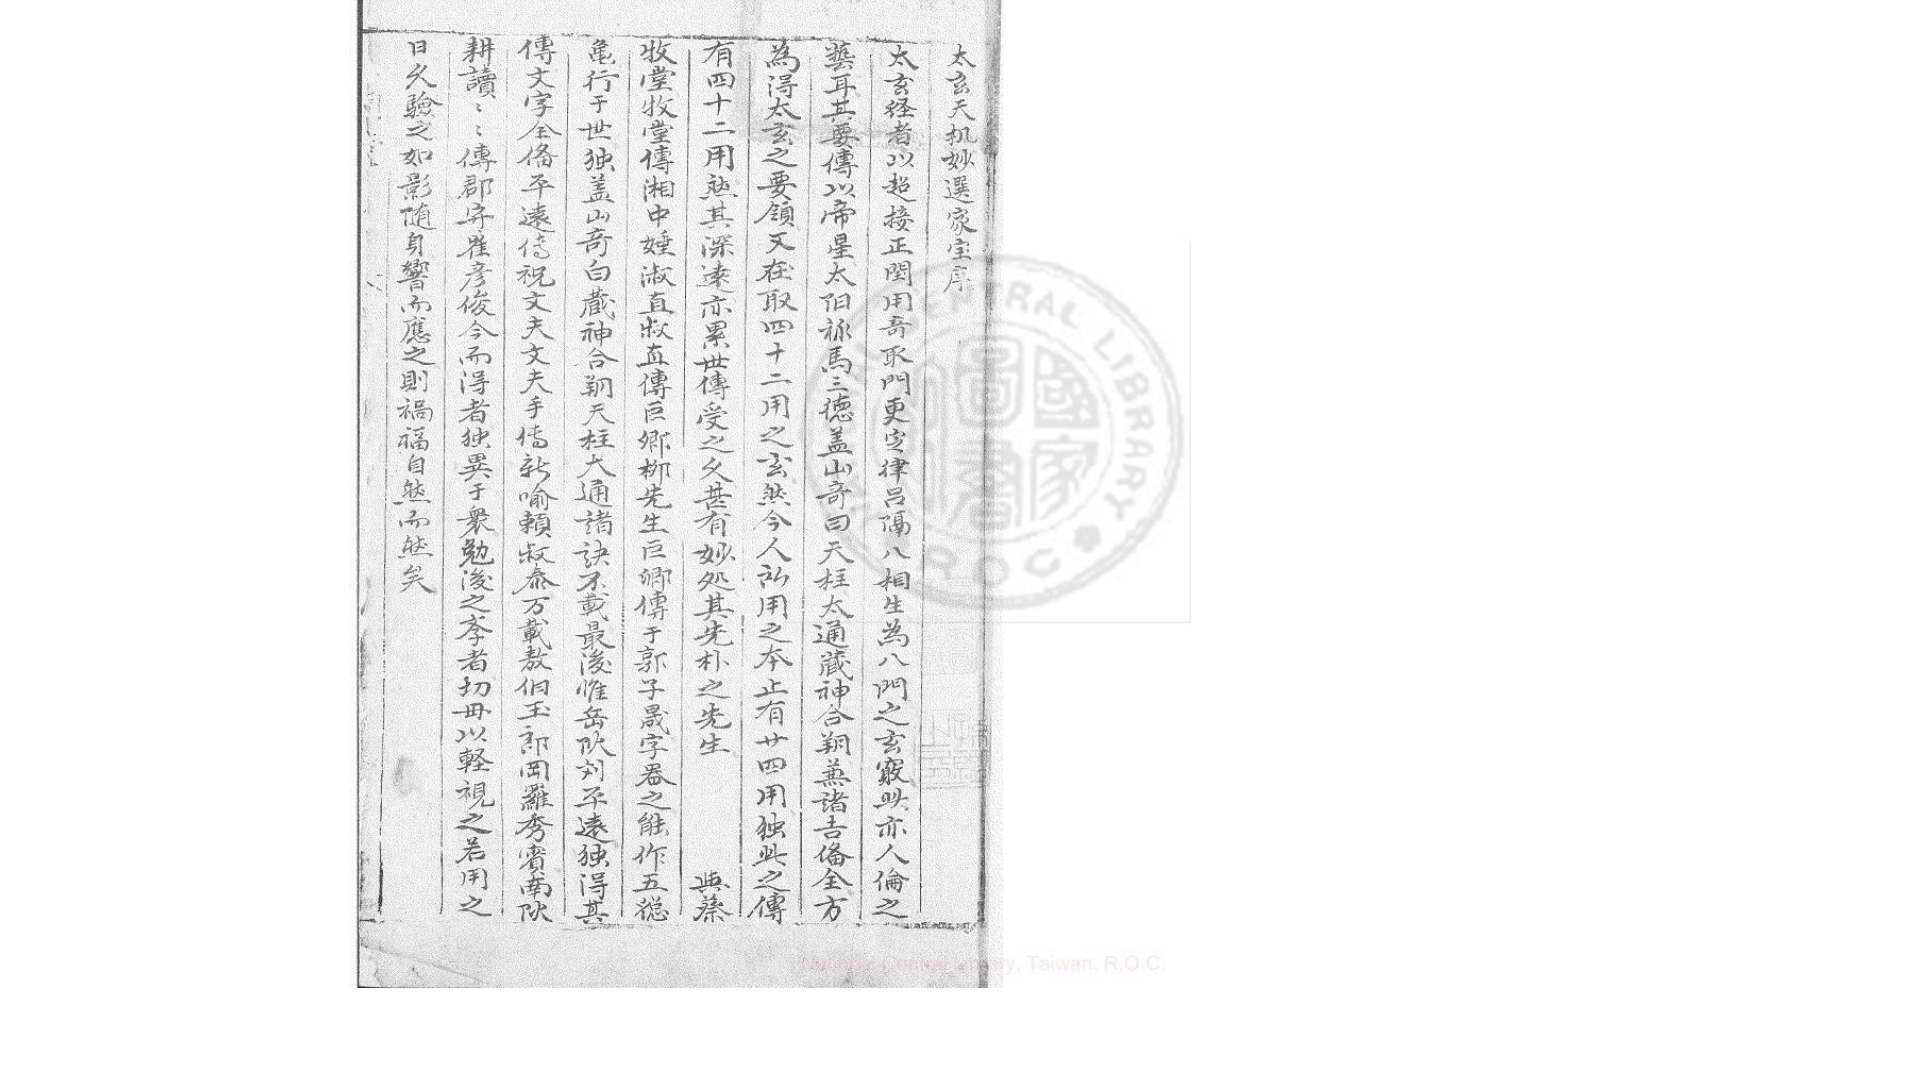 太玄天机妙選家宝序
太玄経者以超接正閏用奇取門更定律呂隔八相生為八門之玄竅此亦人倫之
藝耳其要傳以帝星太阳禄馬三德盖山奇曰天柱太通藏神合朔蒹諸吉俻全方
為得太玄之要領又在取四十二用之玄然今人所用之本止有廿四用独此之傳
有四十二用然其深遠亦累世傳受之久甚有妙処其先朴之先生　與蔡
牧堂牧堂傳湘中 淑直淑直傳巨卿柳先生巨卿傳于郭子晟字器之能作五
亀行于世独盖山奇白藏神合朔天柱大通諸訣不載最後惟岳 平遠独得其
傳文字全俻平遠传祝文夫文夫手传新喻頼叔泰万載敖伯玉 岡羅秀賓南
耕讀〻〻傳郡守崔彦俊今而得者独異于衆勉後之斈者切毋以軽視之若用之
日久驗之如影随身響而應之則禍福自然而然矣
NATIONAL CENTRAL LIBRARY R.O.C
國家圖書館
National Central Library, Taiwan, R.O.C.